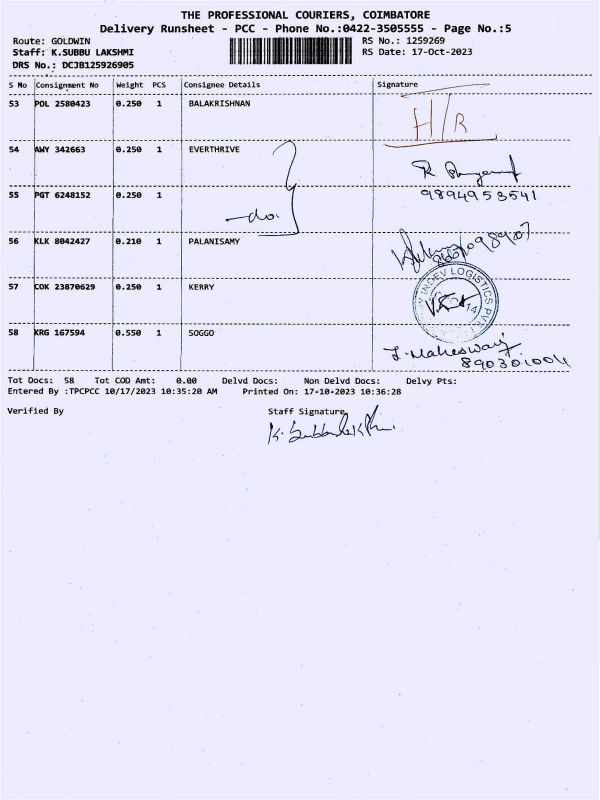 THE PROFESSIONAL COURIERS, COIMBATORE
Delivery Runsheet - PCC - Phone No.:0422-3505555 - Page No.:5
Route: GOLDWIN RS No.: 1259269
Staff: K.SUBBU LAKSHMI RS Date: 17-Oct-2023
DRS No.: DCJB125926905
S No Consignment No Weight PCS Consignee Details Signature
53 POL 2580423 0.250 1 BALAKRISHNAN H/R
54 AWY 342663 0.250 1 EVERTHRIVE
55 PGT 6248152 0.250 1 9894953541
-do.
56 KLK 8042427 0.210 1 PALANISAMY
57 COK 23870629 0.250 1 KERRY
INDEV LOGISTICS PVT.
58 KRG 167594 0.550 1 SOGGO
J. Maheswari
890301004
Tot Docs: 58 Tot COD Amt: 0.00 Delvd Docs: Non Delvd Docs: Delvy Pts:
Entered By :TPCPCC 10/17/2023 10:35:20 AM Printed On: 17-10-2023 10:36:28
Verified By Staff Signature
K. Subbulakshmi